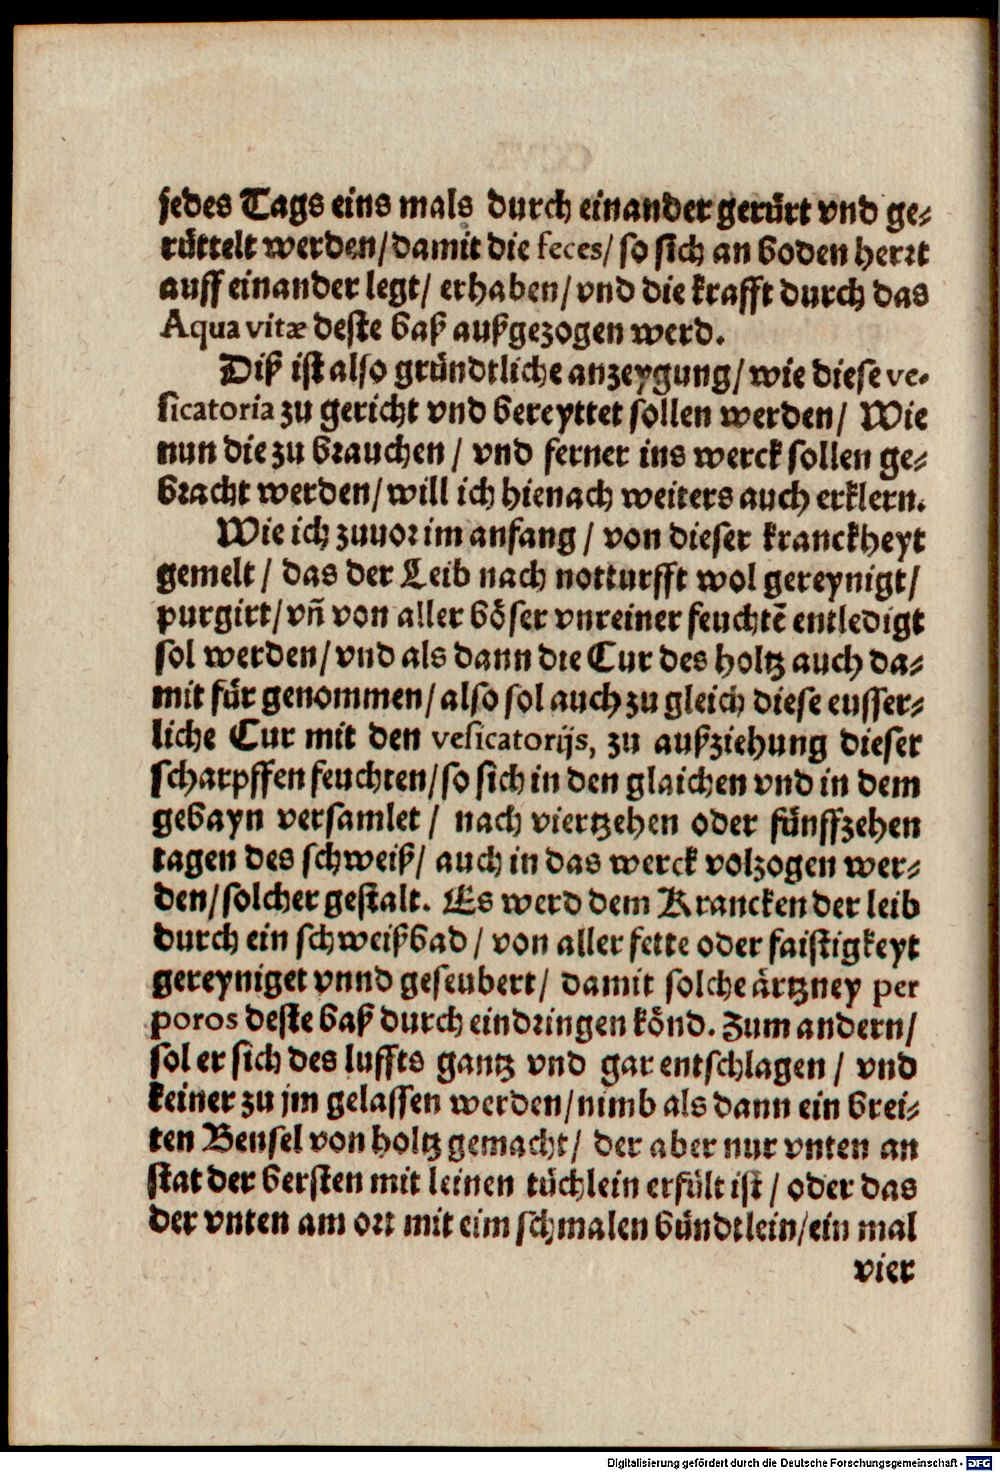 jedes Tags eins mals durch einander gerürt vnd ge⸗
rüttelt werden/ damit die feces/ so sich an boden herrt
auff einander legt/ erhaben/ vnd die krafft durch das
Aqua vitæ deste baß außgezogen werd.
Diß ist also gründtliche anzeygung/ wie diese ve-
sicatoria zu gericht vnd bereyttet sollen werden/ Wie
nun die zu brauchen/ vnd ferner ins werck sollen ge⸗
bracht werden/ will ich hienach weiters auch erklern.
Wie ich zuuor im anfang/ von dieser kranckheyt
gemelt/ das der Leib nach notturfft wol gereynigt/
purgirt/ vñ von aller böser vnreiner feuchtē entledigt
sol werden/ vnd als dann die Cur des holtz auch da⸗
mit für genommen/ also sol auch zu gleich diese eusser⸗
liche Cur mit den vesicatorijs, zu außziehung dieser
scharpffen feuchten/ so sich in den glaichen vnd in dem
gebayn versamlet/ nach viertzehen oder fünffzehen
tagen des schweiß/ auch in das werck volzogen wer⸗
den/ solcher gestalt. Es werd dem Krancken der leib
durch ein schweißbad/ von aller fette oder faistigkeyt
gereyniget vnnd geseubert/ damit solche ärtzney per
poros deste baß durch eindringen könd. Zum andern/
sol er sich des luffts gantz vnd gar entschlagen/ vnd
keiner zu jm gelassen werden/ nimb als dann ein brei⸗
ten Bensel von holtz gemacht/ der aber nur vnten an
stat der bersten mit leinen tüchlein erfült ist/ oder das
der vnten am ort mit eim schmalen bündtlein/ ein mal
vier
Digitalisierung gefördert durch die Deutsche Forschungsgemeinschaft - DFG